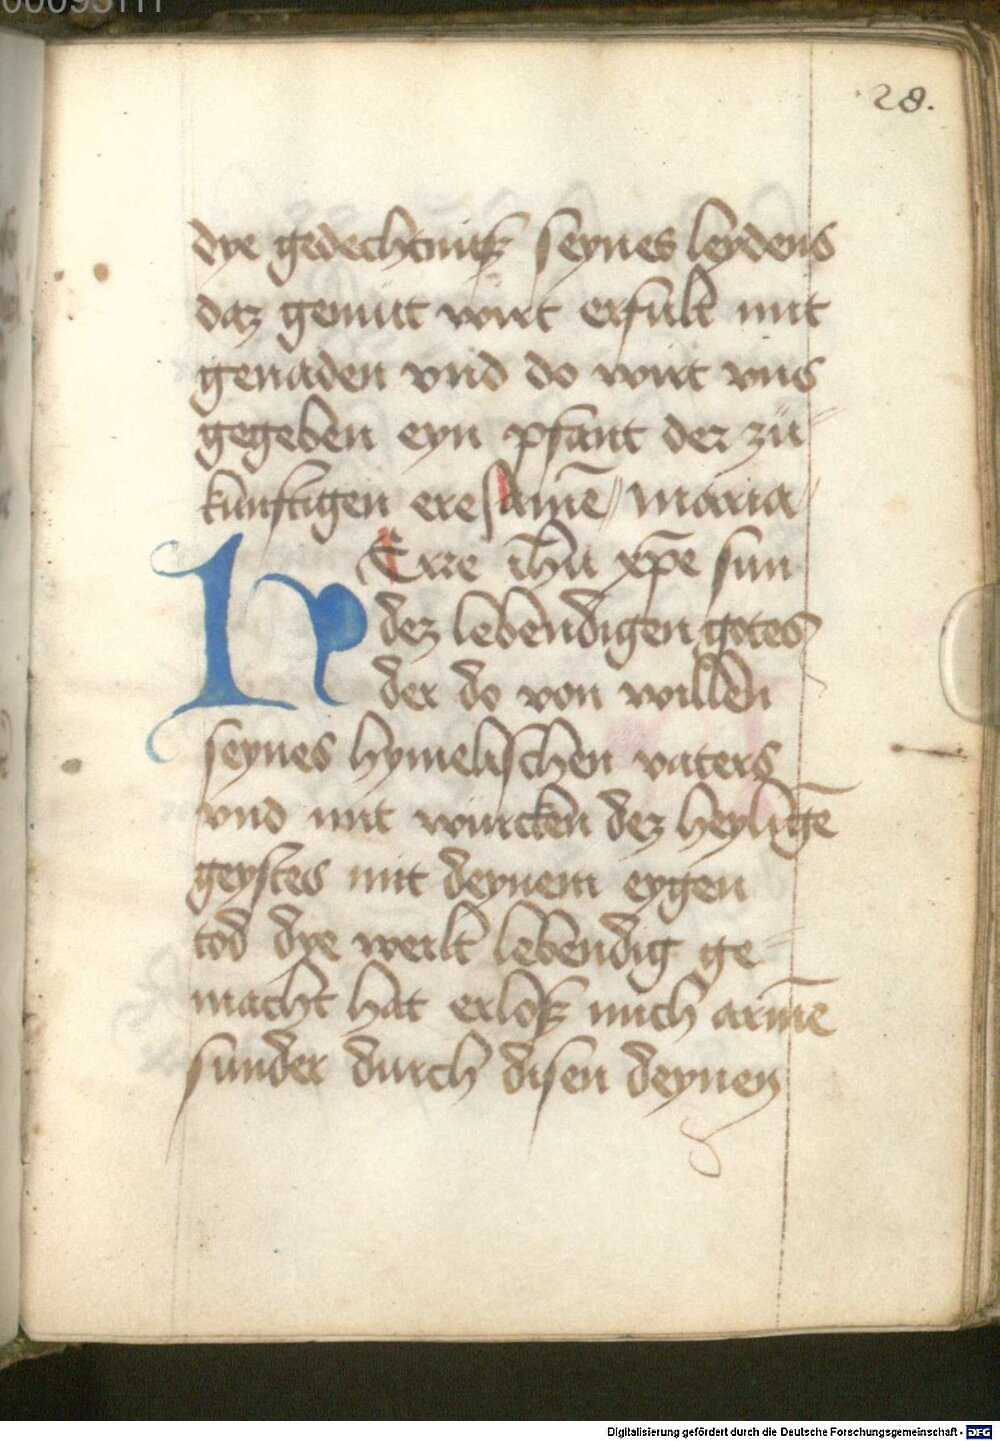 00093111
28.
dye gedechtniß seynes leydens
daz gemut wirt erfult mit
genaden vnd do wirt vns
gegeben eyn pfant der zü-
kunftigen ere amē maria
HErre ihū xpē sun
dez lebendigen gotes
der do von willen
seynes hymelischen vaters
vnd mit würcken dez heyligē
geystes mit deynem eygen
tod dye werlt lebendig ge-
macht hat erloß mich armē
sunder durch disen deynen
Digitalisierung gefördert durch die Deutsche Forschungsgemeinschaft - DFG